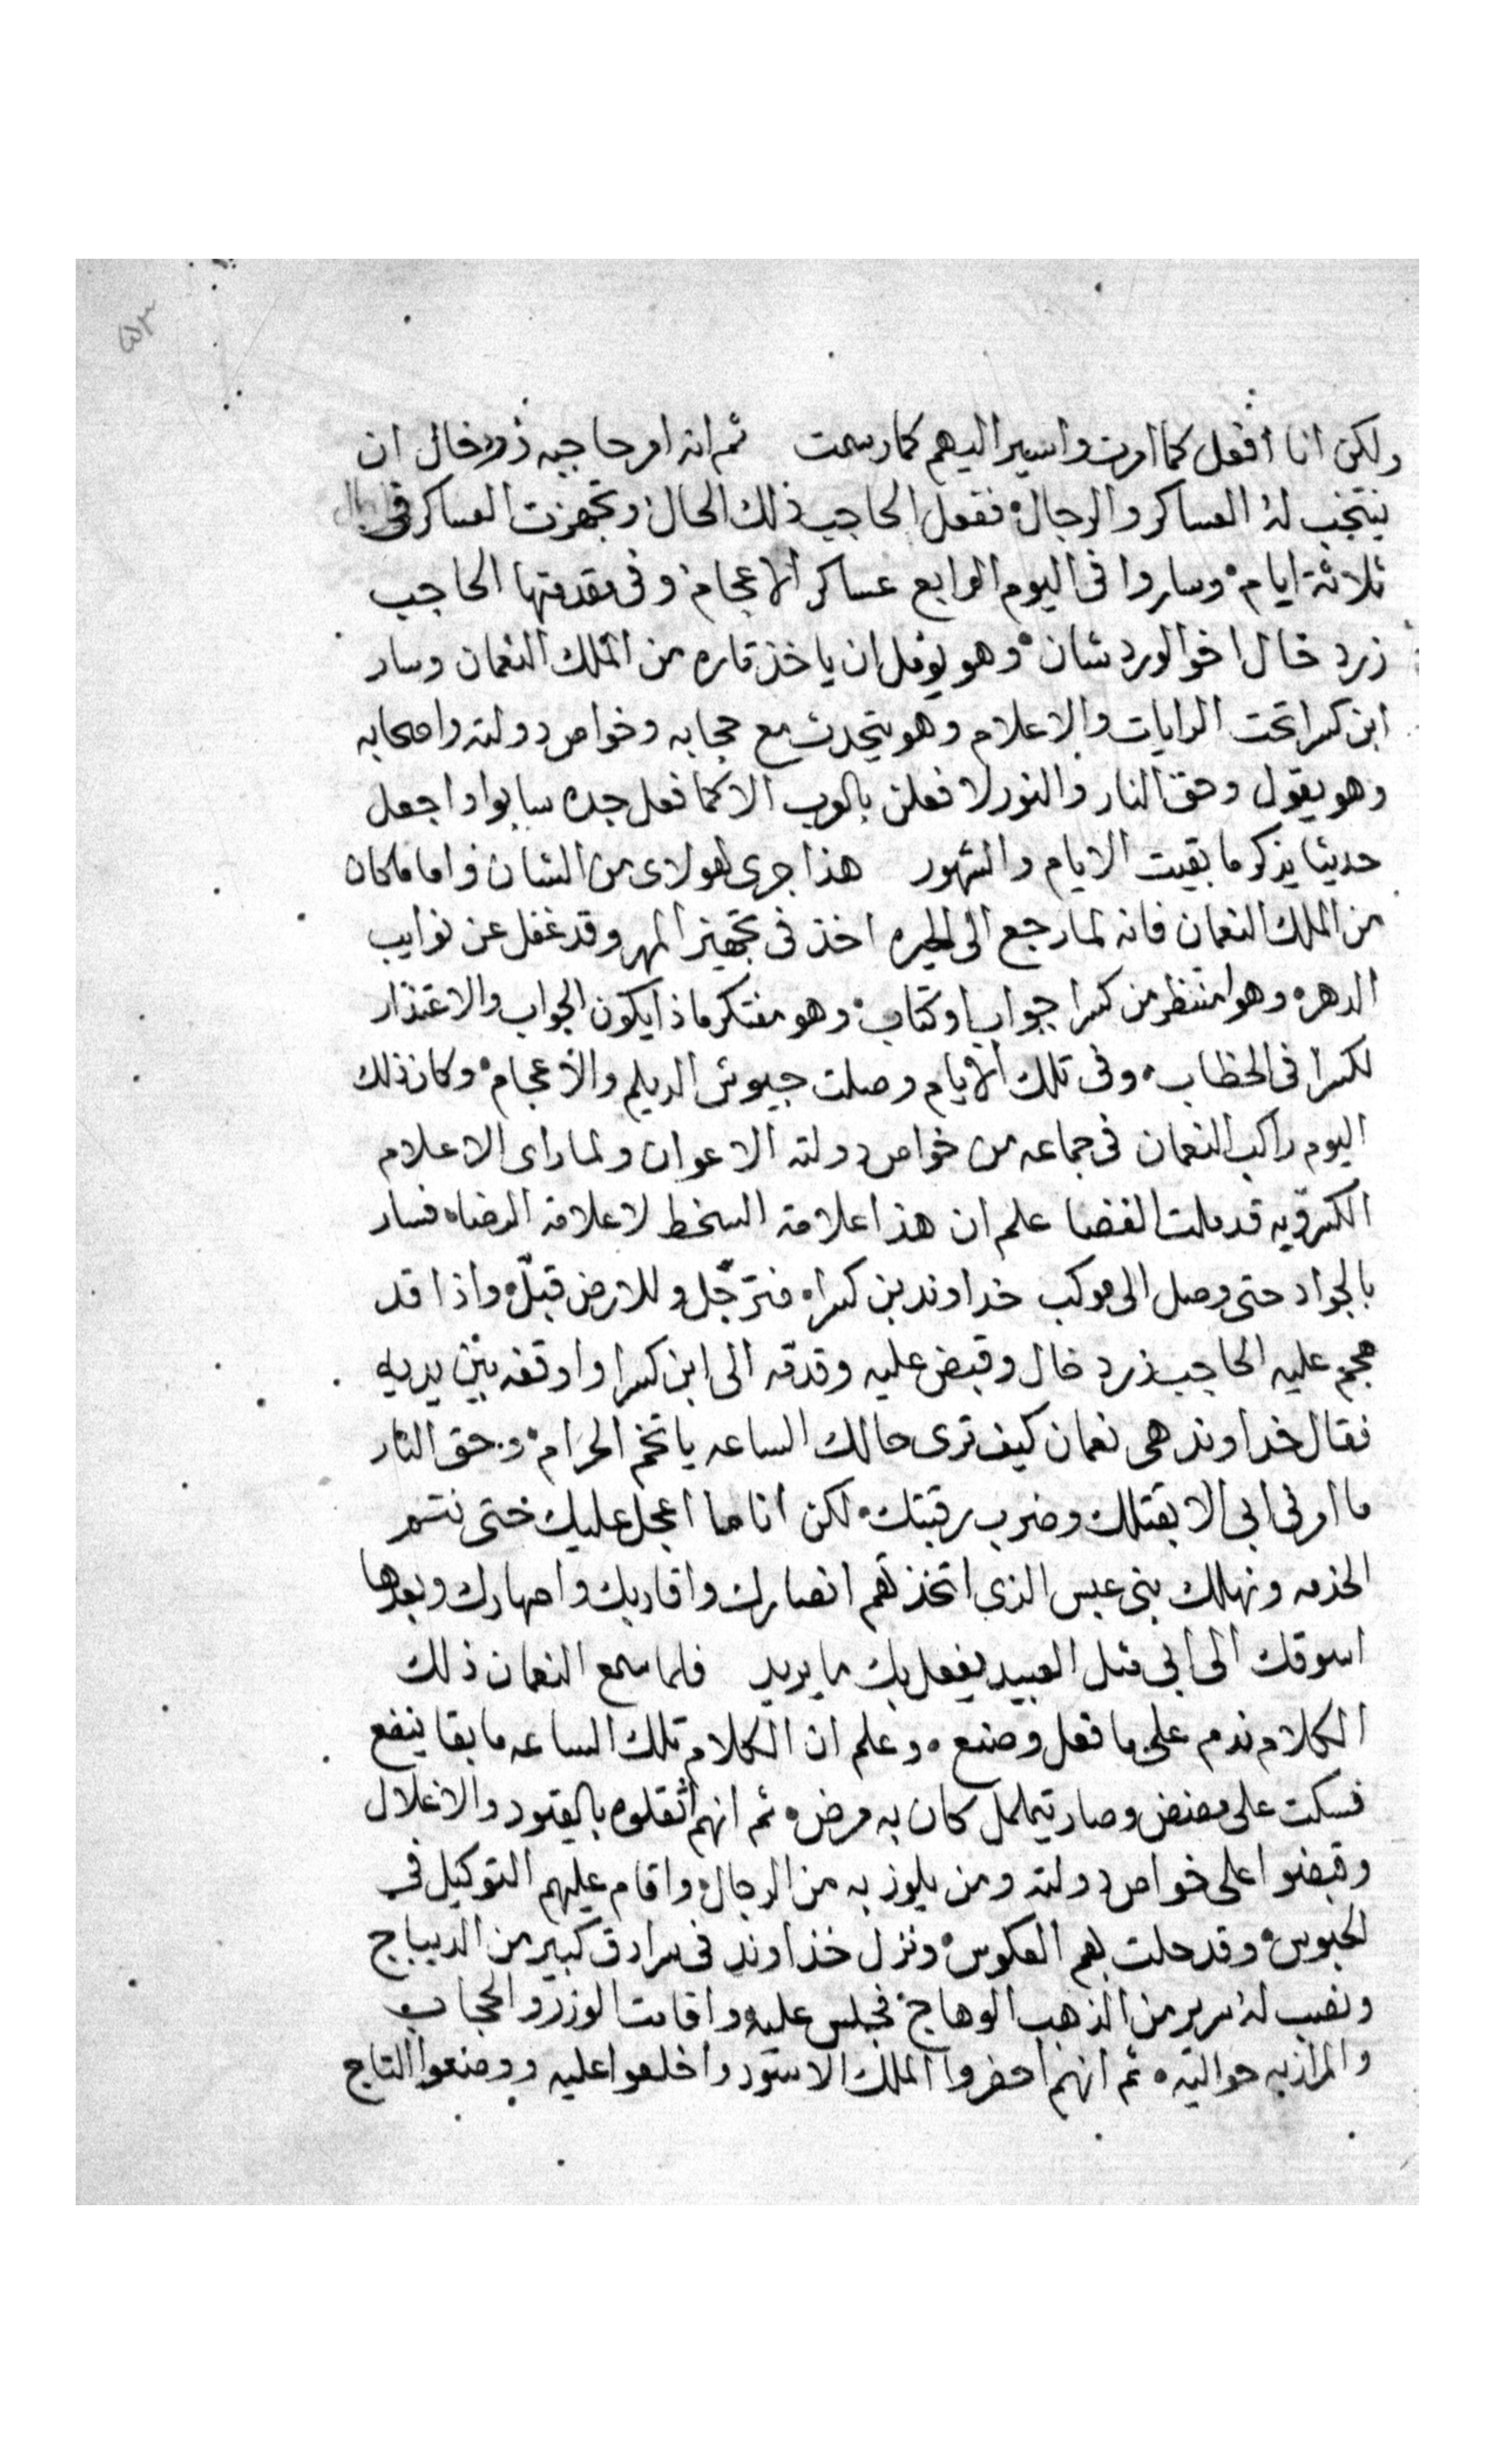 ٥٣
ولكن انا افعل كما امرت واسير اليهم كما رسمت ثم انه امر حاجبه زرد خال ان
ينتخب له العساكر والرجال ففعل الحاجب ذلك الحال وتجهزت العساكر في
ثلاثة ايام وساروا في اليوم الرابع عساكر الاعجام وفي مقدمتها الحاجب
زرد خال اخو الوردشان وهو يومل ان ياخذ تاره من الملك النعمان وسار
ابن كسرا تحت الرايات والاعلام وهو يتحدث مع حجابه وخواص دولته واصحابه
وهو يقول وحق النار والنور لا فعلن بالعرب الا كما فعل جده سابوا واجعل
حديثا يذكر ما بقيت الايام والشهور هذا جرى لهولاى من الشان واما ما كان
من الملك النعمان فانه لما رجع الى الحيره اخذ في تجهيز المهر وقد غفل عن نوايب
الدهر وهو منتظر من كسرا جواب او كتاب وهو مفتكر ماذا يكون الجواب والاعتذار
لكسرا في الخطاب وفي تلك الايام وصلت جيوش الديلم والاعجام وكان ذلك
اليوم راكب النعمان في جماعه من خواص دولته الاعوان ولما راى الاعلام
الكسرويه قد ملت الفضا علم ان هذا علامة السخط لا علامة الرضاه فسار
بالجواد حتى وصل الى موكب خداوند بن كسراه فترجّل وللارض قبّل واذا قد
هجم عليه الحاجب زرد خال وقبض عليه وقدمه الى ابن كسرا واوقفه بين يديه
فقال خداوند هى نعمان كيف ترى حالك الساعه يا تخم الحرام وحق النار
ما امرني ابي الا بقتلك وضرب رقبتك لكن انا ما اعجل عليك حتى نتمم
الخدمه ونهلك بني عبس الذي اتخذتهم انصارك واقاربك واصهارك وبعدها
اسوقك الى ابي مثل العبيد يفعل بك ما يريد فلما سمع النعمان ذلك
الكلام ندم على ما فعل وصنع وعلم ان الكلام تلك الساعه ما بقا ينفع
فسكت على مضض وصار يتململ كان به مرض ثم انهم اثقلوه بالقيود والاغلال
وقبضوا على خواص دولته ومن يلوذ به من الرجال واقام عليهم التوكيل في
الحبوس وقد حلت بهم العكوس ونزل خداوند في سرادق كبير من الديباج
ونصب له سرير من الذهب الوهاج فجلس عليه واقامت الوزر والحجاب
والمرازبه حواليه ثم انهم احضروا الملك الاسود واخلعوا عليه ووضعوا التاج